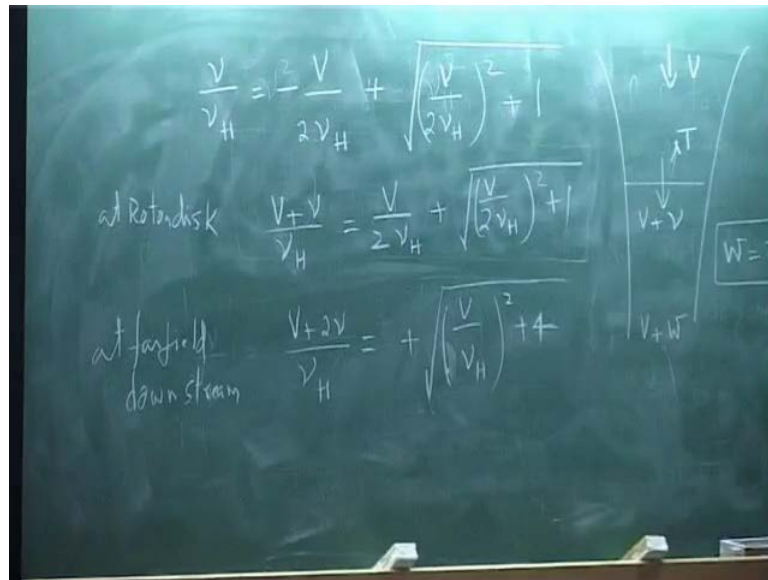 ν/ν_H = - V/2ν_H + √((V/2ν_H)² + 1)
at Rotor disk (V + ν)/ν_H = V/2ν_H + √((V/2ν_H)² + 1)
at farfield downstream (V + 2ν)/ν_H = + √((V/ν_H)² + 4)
V
T
V + ν
W =
V + W